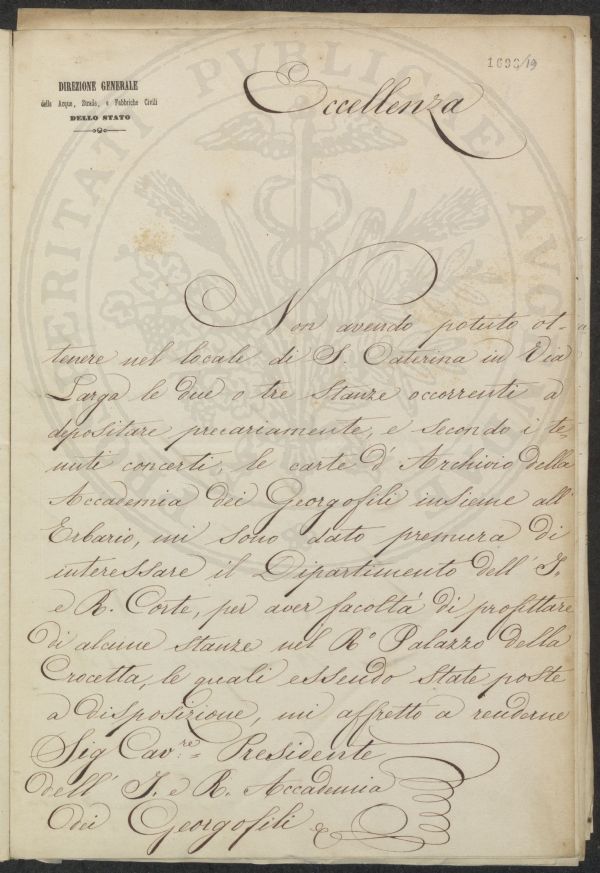 1698/19
DIREZIONE GENERALE
delle Acque, Strade, e Fabbriche Civili
DELLO STATO
Eccellenza
Non avendo potuto ot-
tenere nel locale di S. Caterina in Via
Larga le due o tre stanze occorrenti a
depositare precariamente, e secondo i te-
nuti concerti, le carte d'Archivio della
Accademia dei Georgofili insieme all'
Erbario, mi sono dato premura di
interessare il Dipartimento dell' I.
e R. Corte, per aver facoltà di profittare
di alcune stanze nel R.º Palazzo della
Crocetta, le quali essendo state poste
a disposizione, mi affretto a renderne
Sig Cav.re Presidente
dell' I. e R. Accademia
dei Georgofili